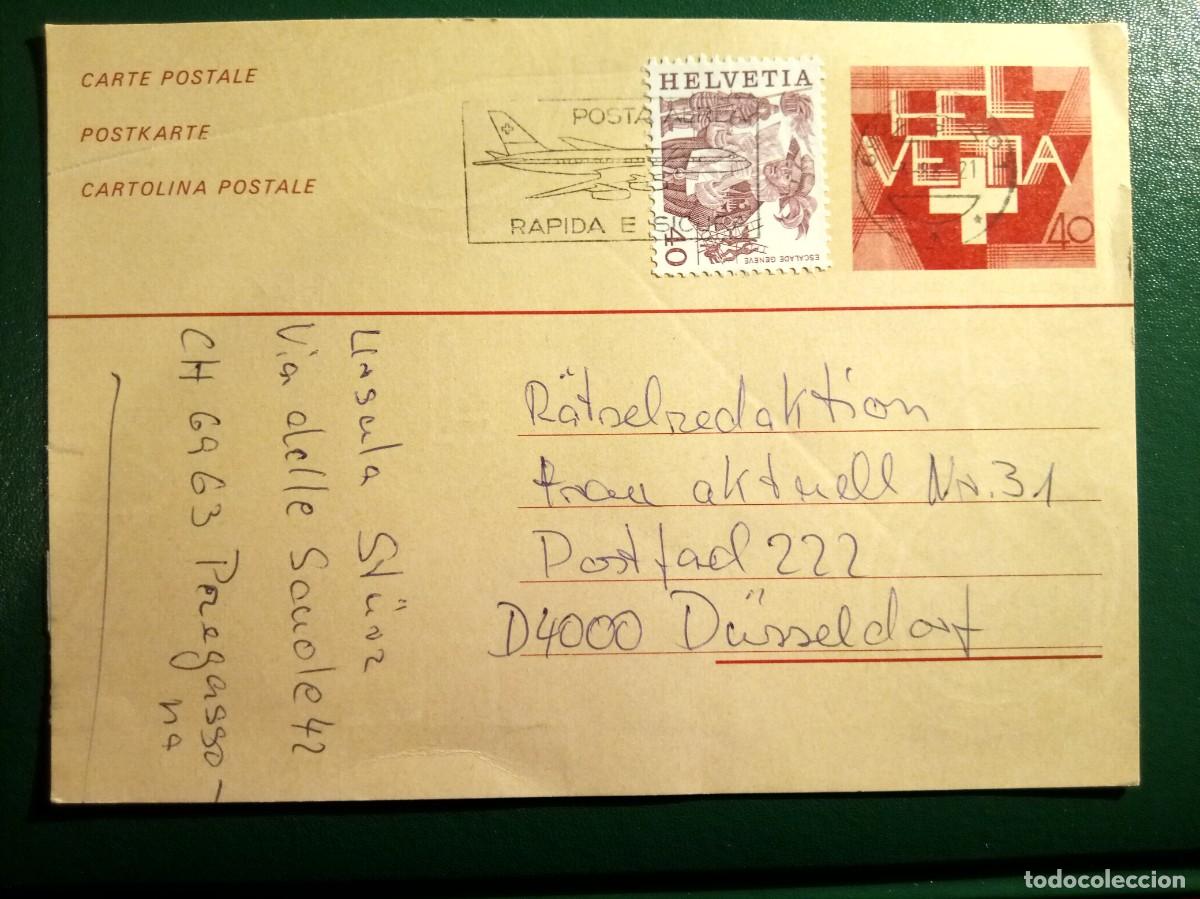 CARTE POSTALE
POSTKARTE
CARTOLINA POSTALE
POSTA AEREA
RAPIDA E SICURA
HELVETIA
40
ESCALADE GENÈVE
HELVETIA
40
Rätselredaktion
frau aktuell Nr. 31
Postfad 222
D4000 Düsseldorf
Ursula Stürz
Via delle Scuole 42
CH 6963 Pregasso-
na
todocoleccion